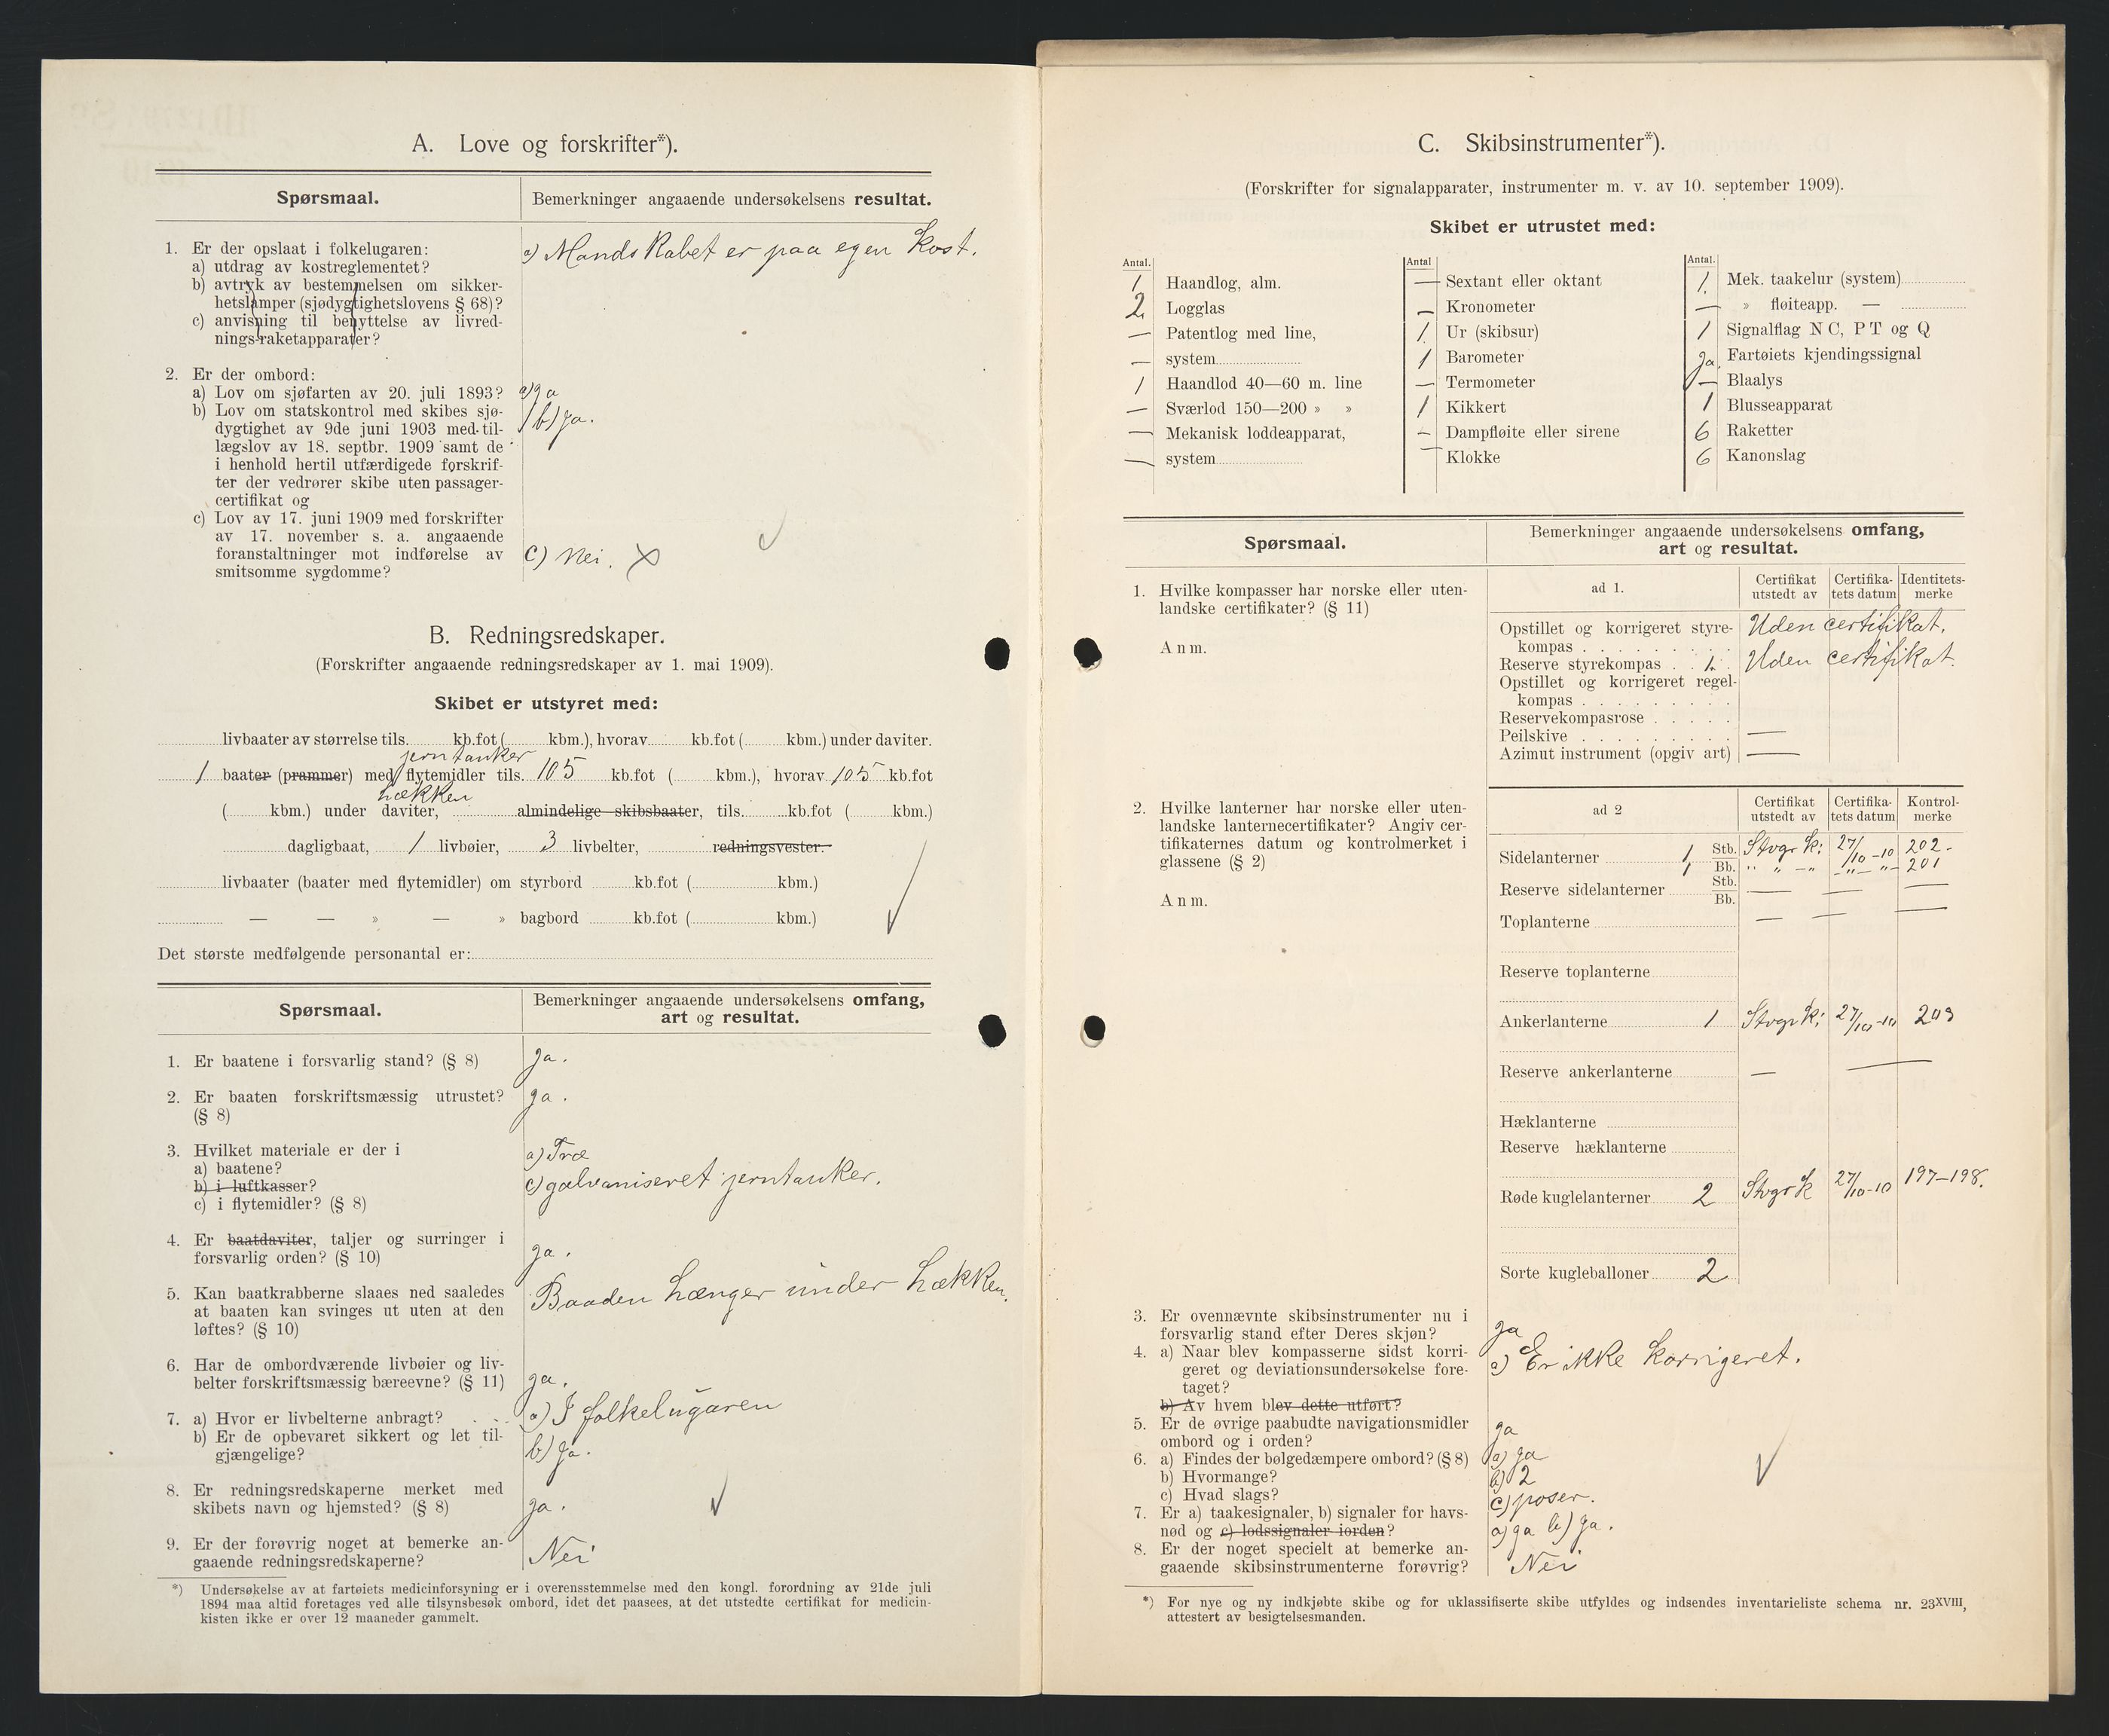 A. Love og forskrifter*).
Spørsmaal.
Bemerkninger angaaende undersøkelsens resultat.
1. Er der opslaat i folkelugaren:
a) utdrag av kostreglementet?
b) avtryk av bestemmelsen om sikker-
hetslamper (sjødygtighetslovens § 68)?
c) anvisning til benyttelse av livred-
nings-raketapparater?
a) Mandskabet er paa egen Kost.
2. Er der ombord:
a) Lov om sjøfarten av 20. juli 1893?
a) ja
b) Lov om statskontrol med skibes sjø-
dygtighet av 9de juni 1903 med til-
lægslov av 18. septbr. 1909 samt de
i henhold hertil utfærdigede forskrif-
ter der vedrører skibe uten passager-
certifikat og
b) ja.
c) Lov av 17. juni 1909 med forskrifter
av 17. november s. a. angaaende
foranstaltninger mot indførelse av
smitsomme sygdomme?
c) Nei.
B. Redningsredskaper.
(Forskrifter angaaende redningsredskaper av 1. mai 1909).
Skibet er utstyret med:
livbaater av størrelse tils. kb.fot ( kbm.), hvorav kb.fot ( kbm.) under daviter.
jerntanker
1 baater (prammer) med flytemidler tils. 105 kb.fot ( kbm.), hvorav 105 kb.fot
hækken
( kbm.) under daviter, almindelige skibsbaater, tils. kb.fot ( kbm.)
dagligbaat, 1 livbøier, 3 livbelter, redningsvester.
livbaater (baater med flytemidler) om styrbord kb.fot ( kbm.)
— — » — » bagbord kb.fot ( kbm.)
Det største medfølgende personantal er:
Spørsmaal.
Bemerkninger angaaende undersøkelsens omfang,
art og resultat.
1. Er baatene i forsvarlig stand? (§ 8)
ja.
2. Er baaten forskriftsmæssig utrustet?
(§ 8)
ja.
3. Hvilket materiale er der i
a) baatene?
b) i luftkasser?
c) i flytemidler? (§ 8)
a) Træ
c) galvaniseret jerntanker.
4. Er baatdaviter, taljer og surringer i
forsvarlig orden? (§ 10)
ja.
5. Kan baatkrabberne slaaes ned saaledes
at baaten kan svinges ut uten at den
løftes? (§ 10)
Baaden hænger under hækken.
6. Har de ombordværende livbøier og liv-
belter forskriftsmæssig bæreevne? (§ 11)
ja.
7. a) Hvor er livbelterne anbragt?
b) Er de opbevaret sikkert og let til-
gjængelige?
a) I folkelugaren
b) ja.
8. Er redningsredskaperne merket med
skibets navn og hjemsted? (§ 8)
ja.
9. Er der forøvrig noget at bemerke an-
gaaende redningsredskaperne?
Nei
*) Undersøkelse av at fartøiets medicinforsyning er i overensstemmelse med den kongl. forordning av 21de juli
1894 maa altid foretages ved alle tilsynsbesøk ombord, idet det paasees, at det utstedte certifikat for medicin-
kisten ikke er over 12 maaneder gammelt.
C. Skibsinstrumenter*).
(Forskrifter for signalapparater, instrumenter m. v. av 10. september 1909).
Skibet er utrustet med:
Antal.
1 Haandlog, alm.
2 Logglas
— Patentlog med line,
— system
1 Haandlod 40—60 m. line
— Sværlod 150—200 » »
— Mekanisk loddeapparat,
— system
Antal
— Sextant eller oktant
— Kronometer
1 Ur (skibsur)
1 Barometer
— Termometer
1 Kikkert
— Dampfløite eller sirene
— Klokke
Antal.
1 Mek. taakelur (system)
— » fløiteapp. —
1 Signalflag N C, P T og Q
ja Fartøiets kjendingssignal
— Blaalys
1 Blusseapparat
6 Raketter
6 Kanonslag
Spørsmaal.
Bemerkninger angaaende undersøkelsens omfang,
art og resultat.
1. Hvilke kompasser har norske eller uten-
landske certifikater? (§ 11)
Anm.
ad 1.
Certifikat utstedt av
Certifika-tets datum
Identitets-merke
Opstillet og korrigeret styre-
kompas
Uden certifikat.
Reserve styrekompas 1. Uden certifikat.
Opstillet og korrigeret regel-
kompas
Reservekompasrose
Peilskive —
Azimut instrument (opgiv art) —
2. Hvilke lanterner har norske eller uten-
landske lanternecertifikater? Angiv cer-
tifikaternes datum og kontrolmerket i
glassene (§ 2)
Anm.
ad 2
Certifikat utstedt av
Certifika-tets datum
Kontrol-merke
Sidelanterner 1 Stb. Stvgr K: 27/10-10 202-
1 Bb. " " -" -"- "- 201
Reserve sidelanterner Stb. — — —
Bb.
Toplanterne — — —
Reserve toplanterne
Ankerlanterne 1 Stvgr K: 27/10-10 203
Reserve ankerlanterne — —
Hæklanterne
Reserve hæklanterne
Røde kuglelanterner 2 Stvgr K 27/10-10 197-198.
Sorte kugleballoner 2
3. Er ovennævnte skibsinstrumenter nu i
forsvarlig stand efter Deres skjøn?
ja
4. a) Naar blev kompasserne sidst korri-
geret og deviationsundersøkelse fore-
taget?
b) Av hvem blev dette utført?
a) Er ikke korrigeret.
5. Er de øvrige paabudte navigationsmidler
ombord og i orden?
ja
6. a) Findes der bølgedæmpere ombord? (§ 8)
b) Hvormange?
c) Hvad slags?
a) ja
b) 2
c) poser.
7. Er a) taakesignaler, b) signaler for havs-
nød og c) lodssignaler iorden?
a) ja b) ja.
8. Er der noget specielt at bemerke an-
gaaende skibsinstrumenterne forøvrig?
Nei
*) For nye og ny indkjøbte skibe og for uklassifiserte skibe utfyldes og indsendes inventarieliste schema nr. 23XVIII,
attestert av besigtelsesmanden.